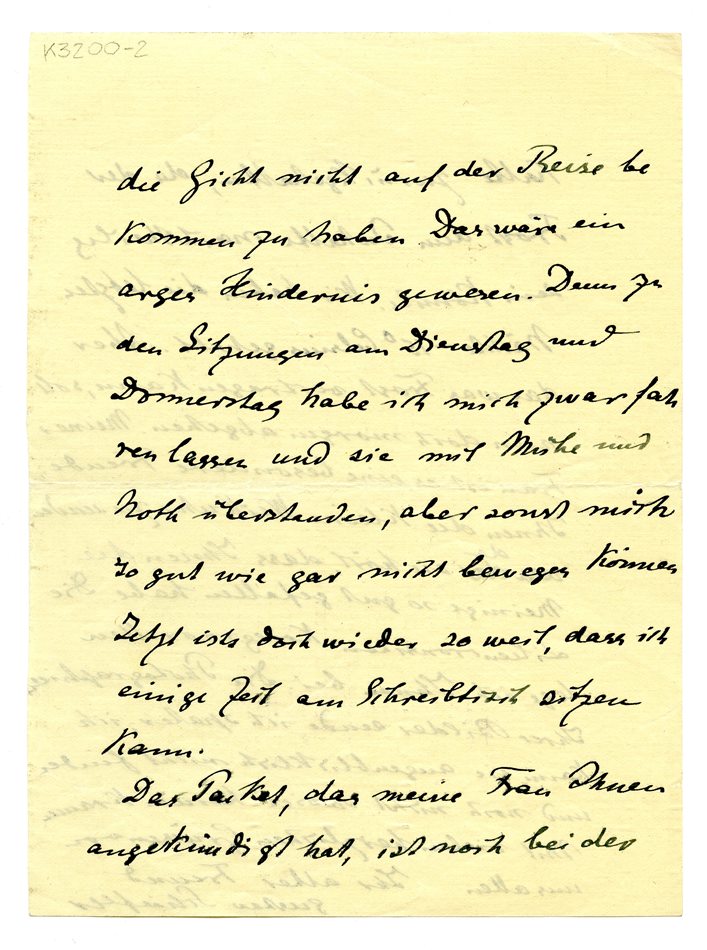 K3200-2
die Gicht nicht auf der Reise be
kommen zu haben. Das wäre ein
arges Hindernis gewesen. Denn zu
den Sitzungen am Dienstag und
Donnerstag habe ich mich zwar fah
ren lassen und sie mit Mühe und
Noth überstanden, aber sonst mich
so gut wie gar nicht bewegen können
Jetzt ists doch wieder so weit, dass ich
einige Zeit am Schreibtisch sitzen
kann.
Das Packet, das meine Frau Ihnen
angekündigt hat, ist noch bei der